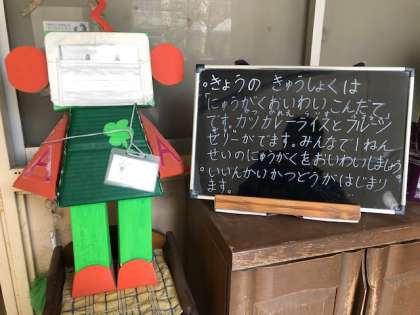 きょうの きゅうしょくは
「にゅうがくおいわいこんだて」
です。カツカレーライスとフルーツ
ゼリーがでます。みんなで1ねん
せいのにゅうがくをおいわいしましょう
いいんかいかつどうがはじまり
ます。
A